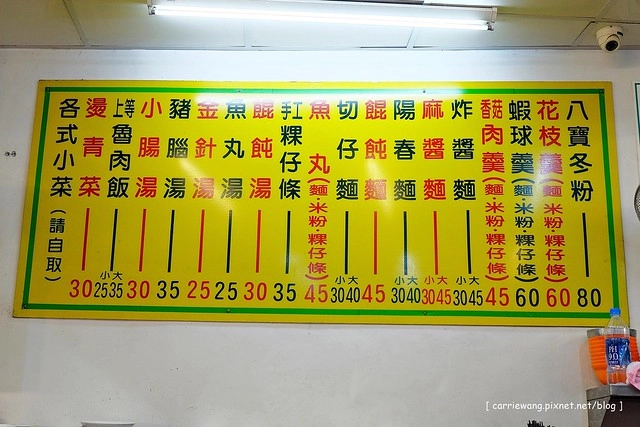 八寶冬粉 80
花枝羹(麵·米粉·粿仔條) 60
蝦球羹(麵·米粉·粿仔條) 60
香菇肉羹(麵·米粉·粿仔條) 45
炸醬麵 小30 大45
麻醬麵 小30 大45
陽春麵 小30 大40
餛飩麵 45
切仔麵 小30 大40
魚丸(麵·米粉·粿仔條) 45
手工粿仔條 35
餛飩湯 30
魚丸湯 25
金針湯 25
豬腦湯 35
小腸湯 30
上等魯肉飯 小25 大35
燙青菜 30
各式小菜(請自取)
[ carriewang.pixnet.net/blog ]